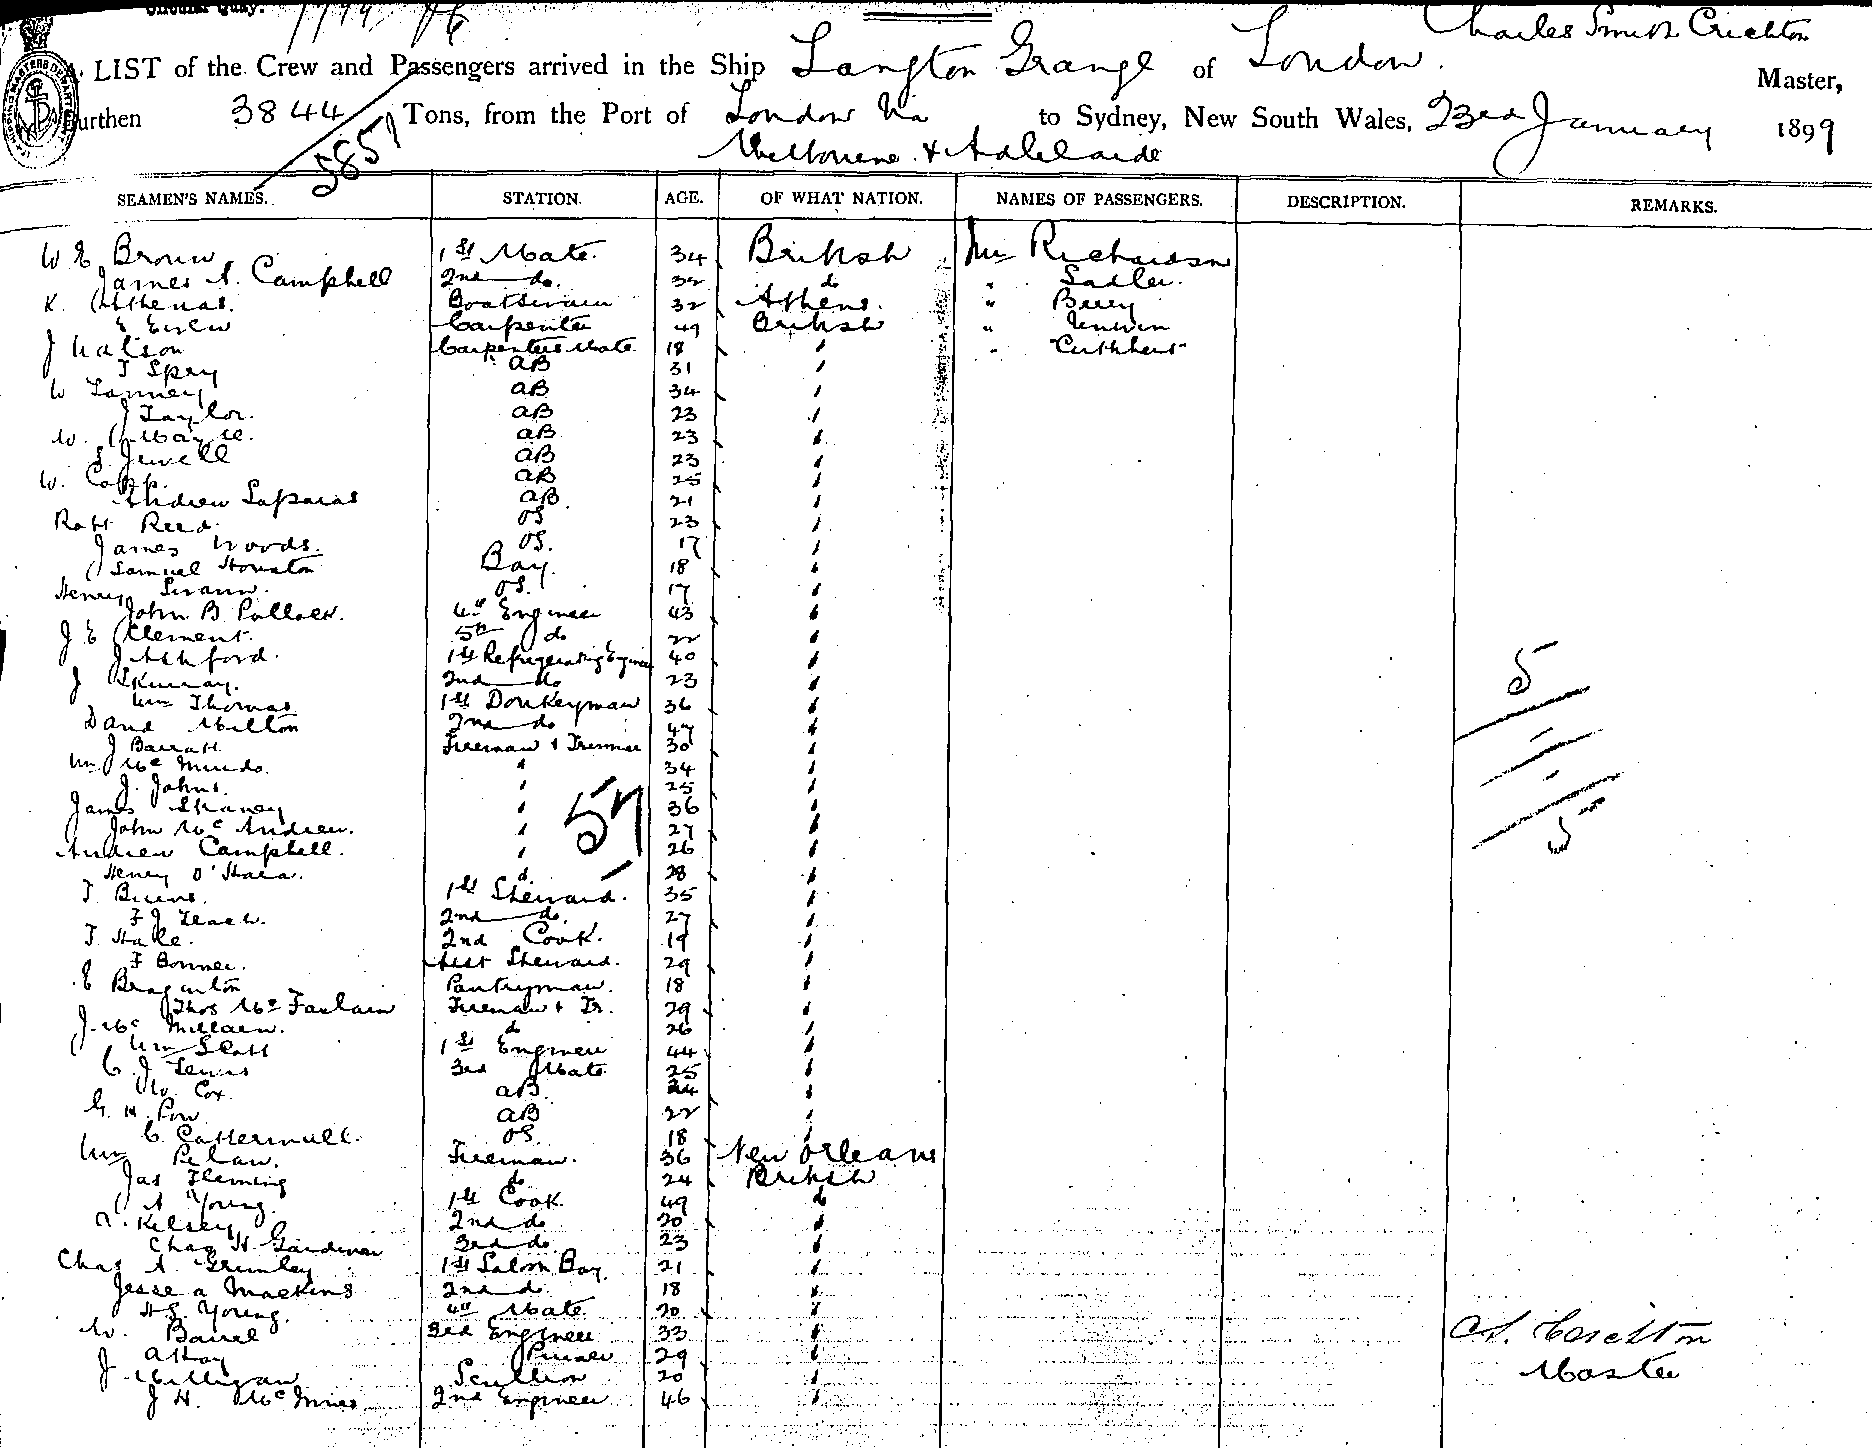 Circular Quay.
Charles Smith Crichton
LIST of the Crew and Passengers arrived in the Ship Langton Grange of London. Master,
Burthen 3844 Tons, from the Port of London Via to Sydney, New South Wales, 23rd January 1899
5851
Melbourne & Adelaide
SEAMEN'S NAMES. STATION. AGE. OF WHAT NATION. NAMES OF PASSENGERS. DESCRIPTION. REMARKS.
W E Brown 1st Mate 34 British Mr Richardson
James A. Campbell 2nd do. 32 do " Sadler
K. Athenas. Boatswain 32 Athens. " Berry
E Carpenter 49 British "
J Watson Carpenters Mate 18 " " Cuthbert
T Spey AB 31 "
W AB 34 "
J Taylor. AB 23 "
W. AB 23 "
S. Jewell AB 23 "
W. Copp. AB 25 "
Andrew AB 21 "
Robt Reed. OS 23 "
James Woods. OS. 17 "
Samuel Houston Boy. 18 "
Henry Swann. OS. 17 "
John B Pollock. 4th Engineer 43 "
J E Clement. 5th do 22 "
J Ashford. 1st Refrigerating Engineer 40 "
J 2nd do 23 "
Wm Thomas 1st Donkeyman 36 "
David Milton 2nd do 47 "
J Barratt Fireman & Trimmer 30 "
Wm Mc " 34 "
J. Johns. " 25 "
James " 36 "
John McAndrew. " 27 "
Andrew Campbell. " 26 "
Henry O'Hara. " 28 "
57
5
5
T Burns. 1st Steward. 35 "
F J Leach. 2nd do. 27 "
T. Hale. 2nd Cook. 19 "
F Bonner. Asst Steward. 29 "
E Pantryman. 18 "
Thos McFarlain Fireman & Tr. 29 "
J. Mc do 26 "
Wm Scott 1st Engineer 44 "
C. J Lewis 3rd Mate 25 "
W. Cox. AB. 24 "
G. H. Pow AB 22 "
C. Cattermull. OS. 18 "
Wm Fireman. 36 New Orleans
Jas Fleming do 24 British
A Young. 1st Cook 49 do
Kelsey 2nd do 20 "
Chas H. Gardiner 3rd do 23 "
Chas A. Grumley 1st Saloon Boy. 21 "
Jesse A Maekins 2nd do. 18 "
H S. Young. 4th Mate. 20 "
W. 3rd Engineer 33 "
J Purser 29 "
J Milligan Scullion 20 "
J H. Mc 2nd Engineer 46 "
C S. Crichton
Master